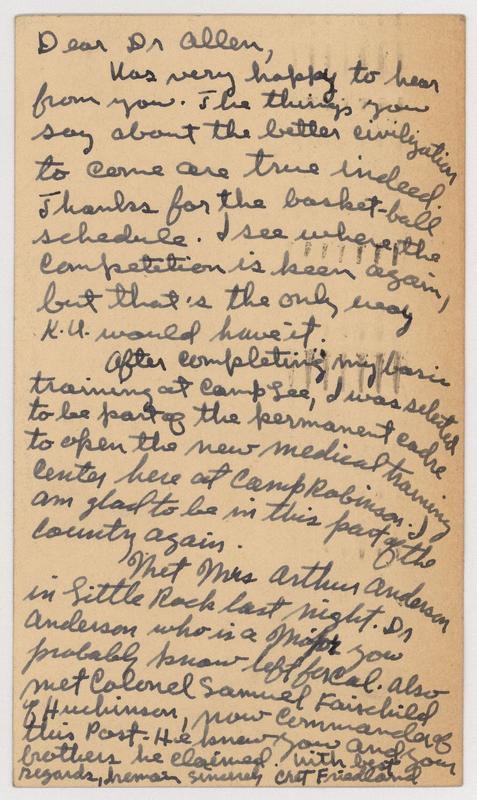 Dear Dr Allen,
Was very happy to hear
from you. The things you
say about the better civilization
to come are true indeed.
Thanks for the basket-ball
schedule. I see where the
competition is keen again,
but that's the only way
K.U. would have it.
After completing my basic
training at Camp Lee, I was selected
to be part of the permanent cadre
to open the new medical training
center here at Camp Robinson. I
am glad to be in this part of the
country again.
Met Mrs Arthur Anderson
in Little Rock last night. Dr
Anderson who is a Major you
probably know left for Cal. Also
met Colonel Samuel Fairchild
of Hutchinson, now Commander of
this Post. He knew you and your
brothers he claimed. With best
regards, I remain sincerely Friedland